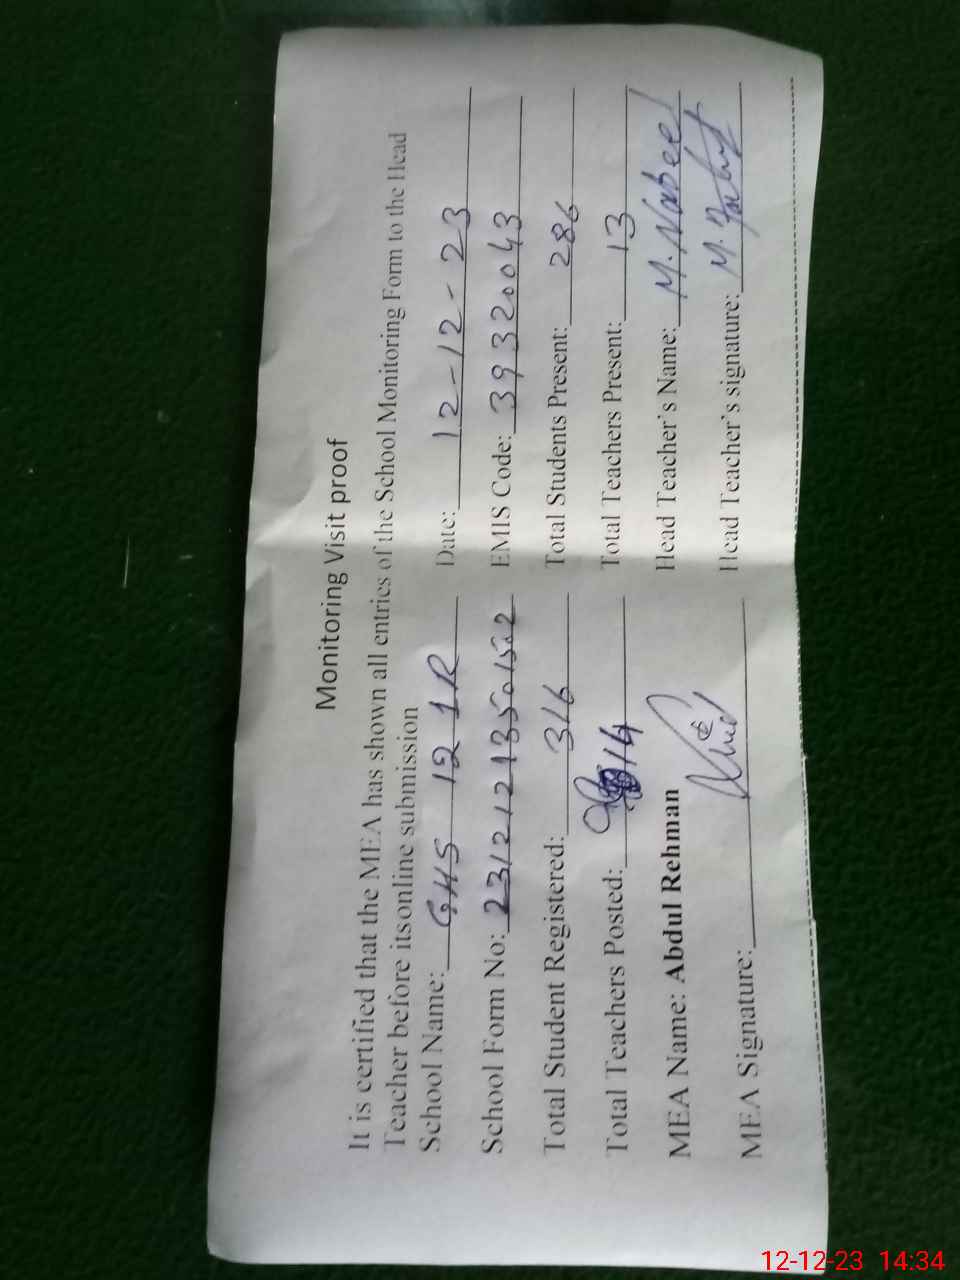 Monitoring Visit proof
It is certified that the MEA has shown all entries of the School Monitoring Form to the Head
Teacher before itsonline submission
School Name: GHS 12 1R Date: 12-12-23
School Form No: EMIS Code: 39320043
Total Student Registered: 316 Total Students Present: 286
Total Teachers Posted: 14 Total Teachers Present: 13
MEA Name: Abdul Rehman Head Teacher's Name: M. Nabeel
MEA Signature: Head Teacher's signature: M.
12-12-23 14:34